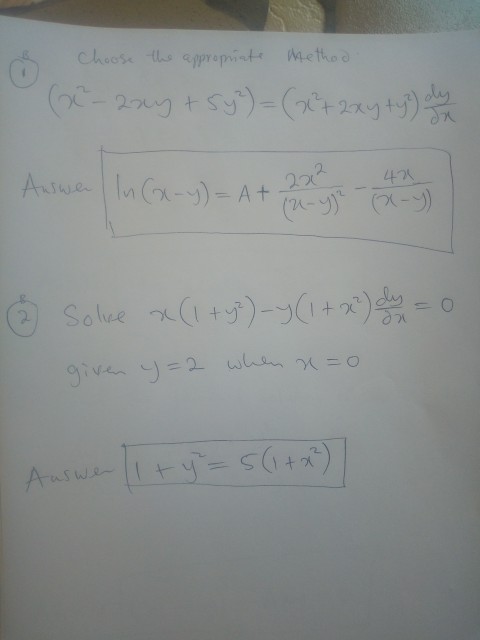 B
1 Choose the appropriate Method
(x² - 2xy + 5y²) = (x² + 2xy + y²) dy/dx
Answer ln(x-y) = A + 2x²/(x-y)² - 4x/(x-y)
B
2 Solve x(1+y²) - y(1+x²) dy/dx = 0
given y = 2 when x = 0
Answer 1 + y² = 5(1+x²)